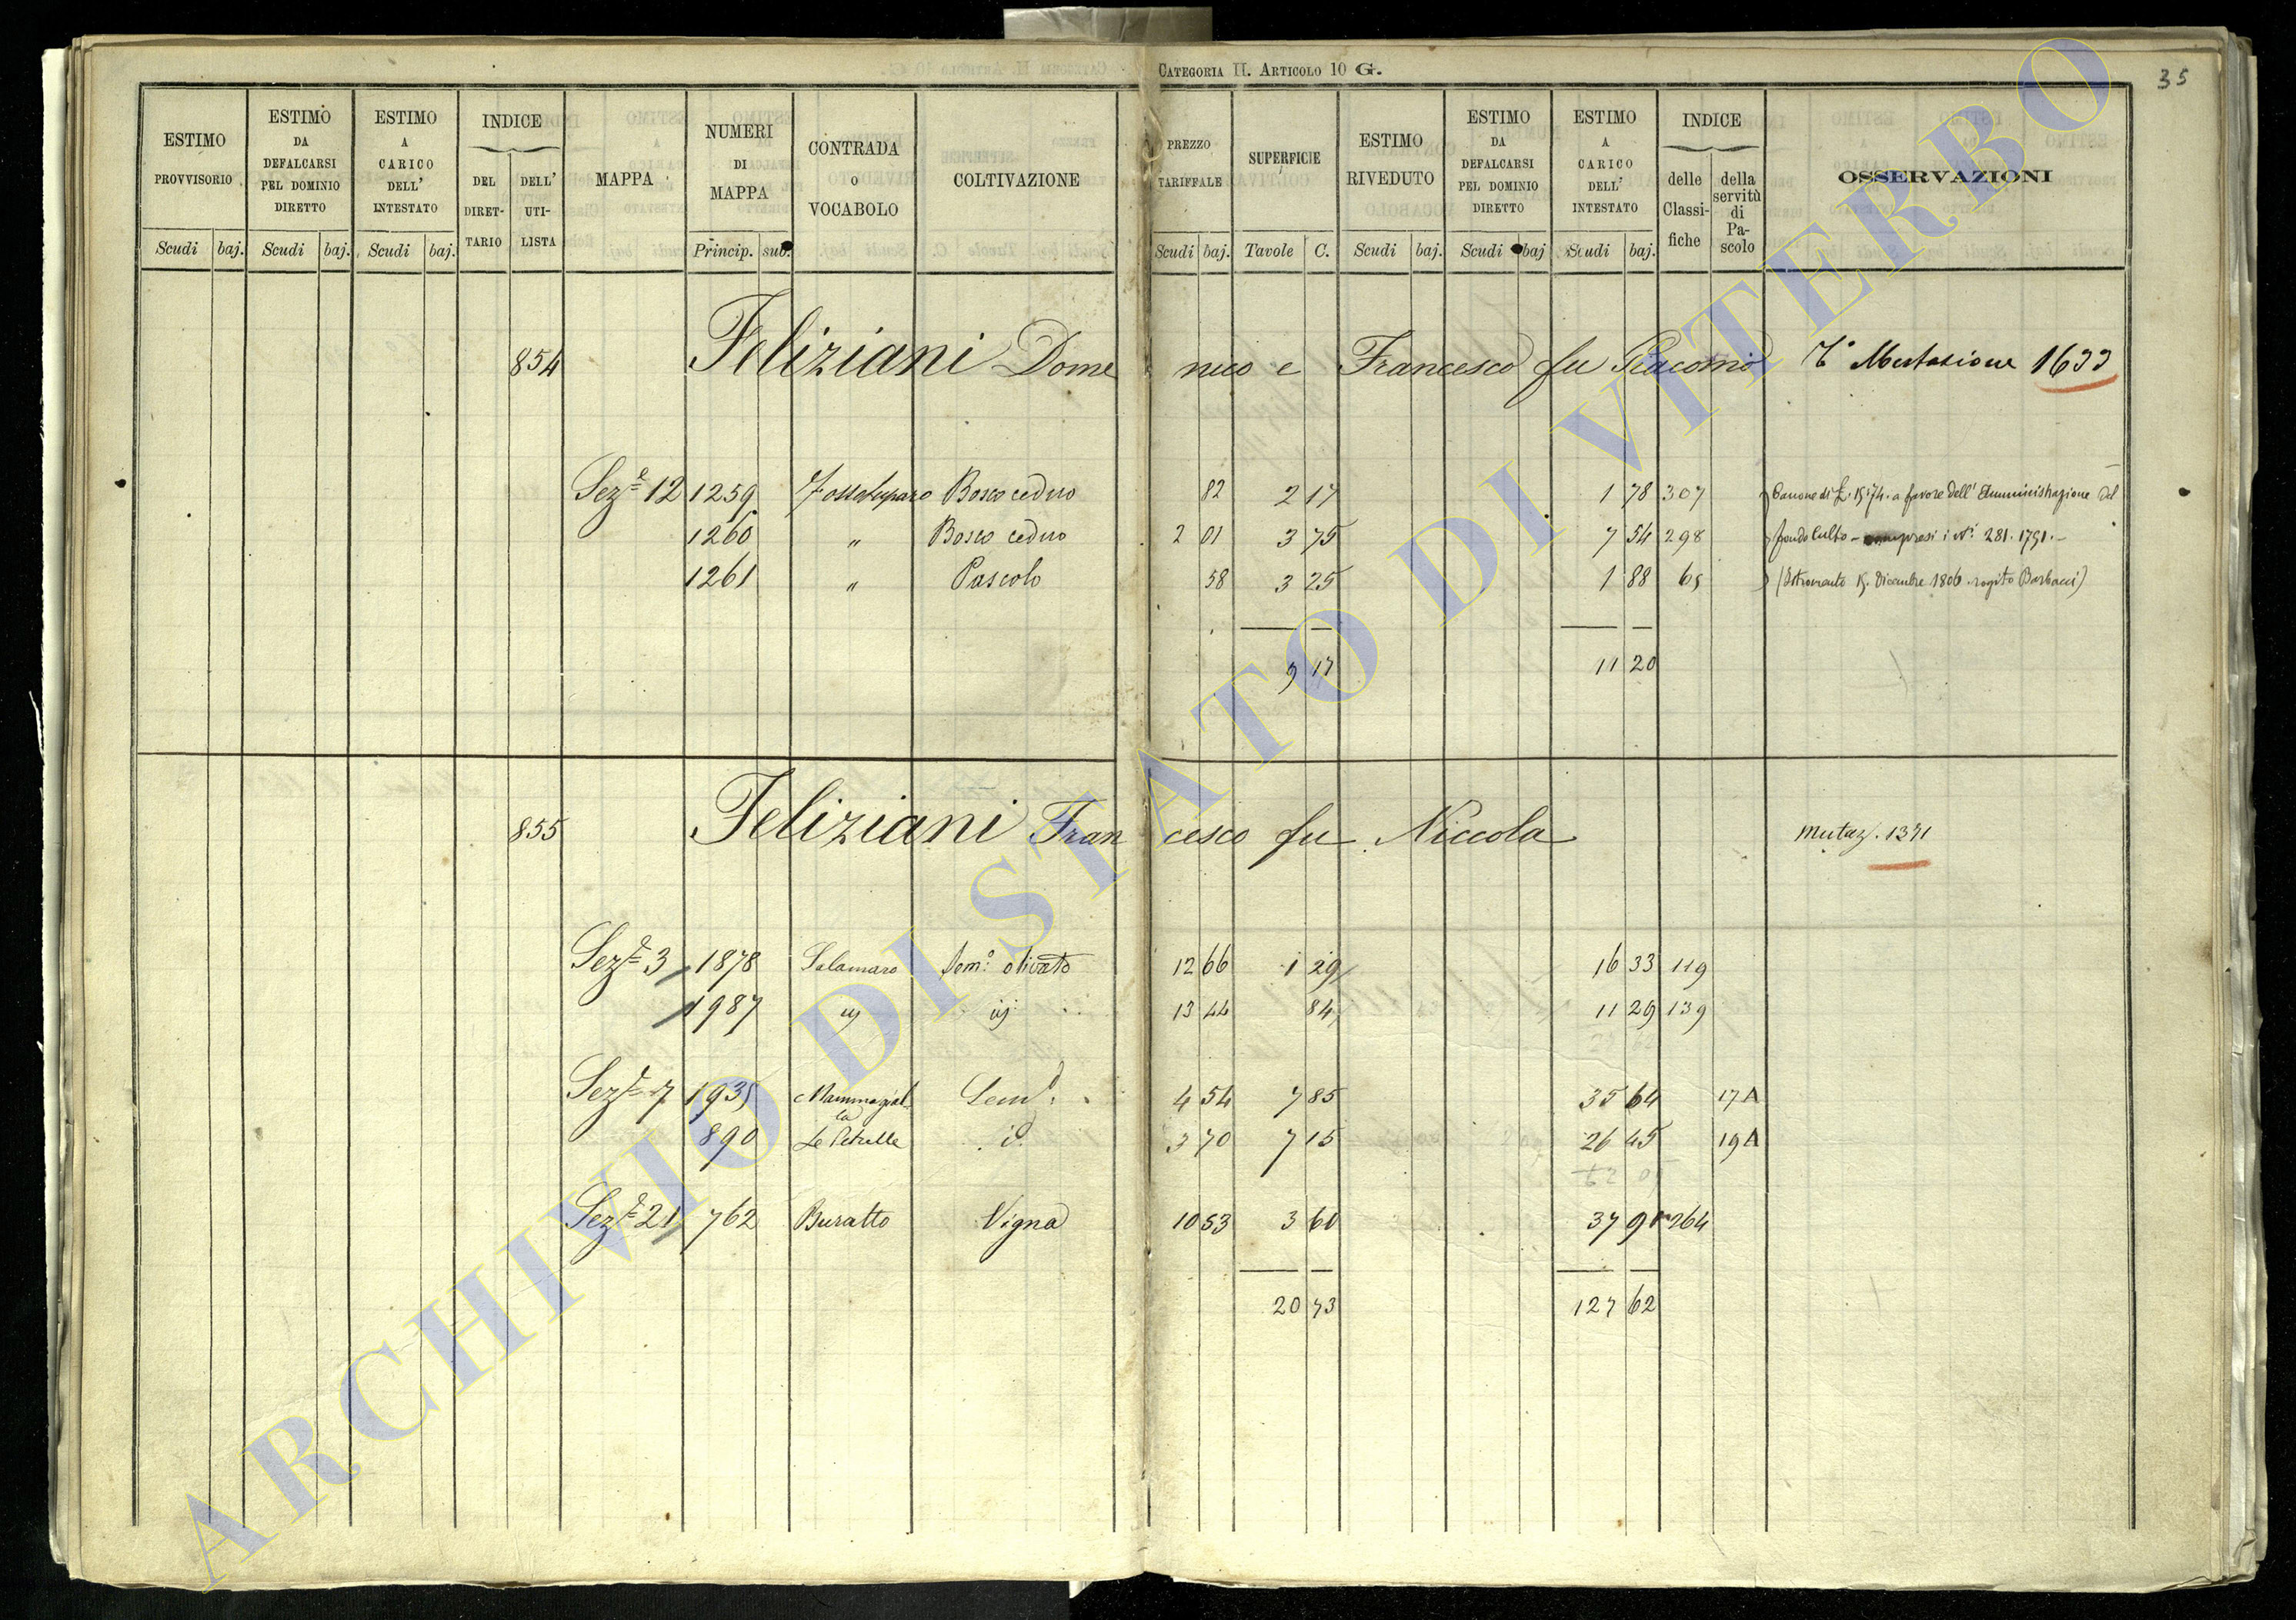 CATEGORIA II. ARTICOLO 10 G.
35
ESTIMO PROVVISORIO
ESTIMO DA DEFALCARSI PEL DOMINIO DIRETTO
ESTIMO A CARICO DELL' INTESTATO
INDICE
DEL DIRET-TARIO
DELL' UTI-LISTA
MAPPA
NUMERI DI MAPPA
CONTRADA O VOCABOLO
COLTIVAZIONE
PREZZO TARIFFALE
SUPERFICIE
ESTIMO RIVEDUTO
ESTIMO DA DEFALCARSI PEL DOMINIO DIRETTO
ESTIMO A CARICO DELL' INTESTATO
INDICE
delle Classi-fiche
della servitù di Pa-scolo
OSSERVAZIONI
Scudi baj. Scudi baj. Scudi baj. Princip. sub. Scudi baj. Tavole C. Scudi baj. Scudi baj Scudi baj.
854 Feliziani Domenico e Francesco fu Giacomo Mutazione 1633
Sez.e 12 1259 Bosco ceduo 82 2 17 1 78 307 Canone di £ a favore dell' Amministrazione del
1260 " Bosco ceduo 2 01 3 75 7 54 298 fondo Culto - compresi i N.i 281. 1791. -
1261 " Pascolo 58 3 25 1 88 (Istromento Dicembre 1806 rogito Barbacci)
9 17 11 20
855 Feliziani Francesco fu Niccola mutaz. 1391
Sez.e 3 1878 Salamaro Sem.o olivato 12 66 1 29 16 33 119
1987 13 44 84 11 29 139
Sez.e 7 1935 Mammagialla Sem.o 4 54 7 85 35 64 17 A
890 Le Petrelle id. 3 70 7 15 26 45 19 A
Sez.e 21 762 Buratto Vigna 10 53 3 60 37 91 264
20 73 127 62
ARCHIVIO DI STATO DI VITERBO